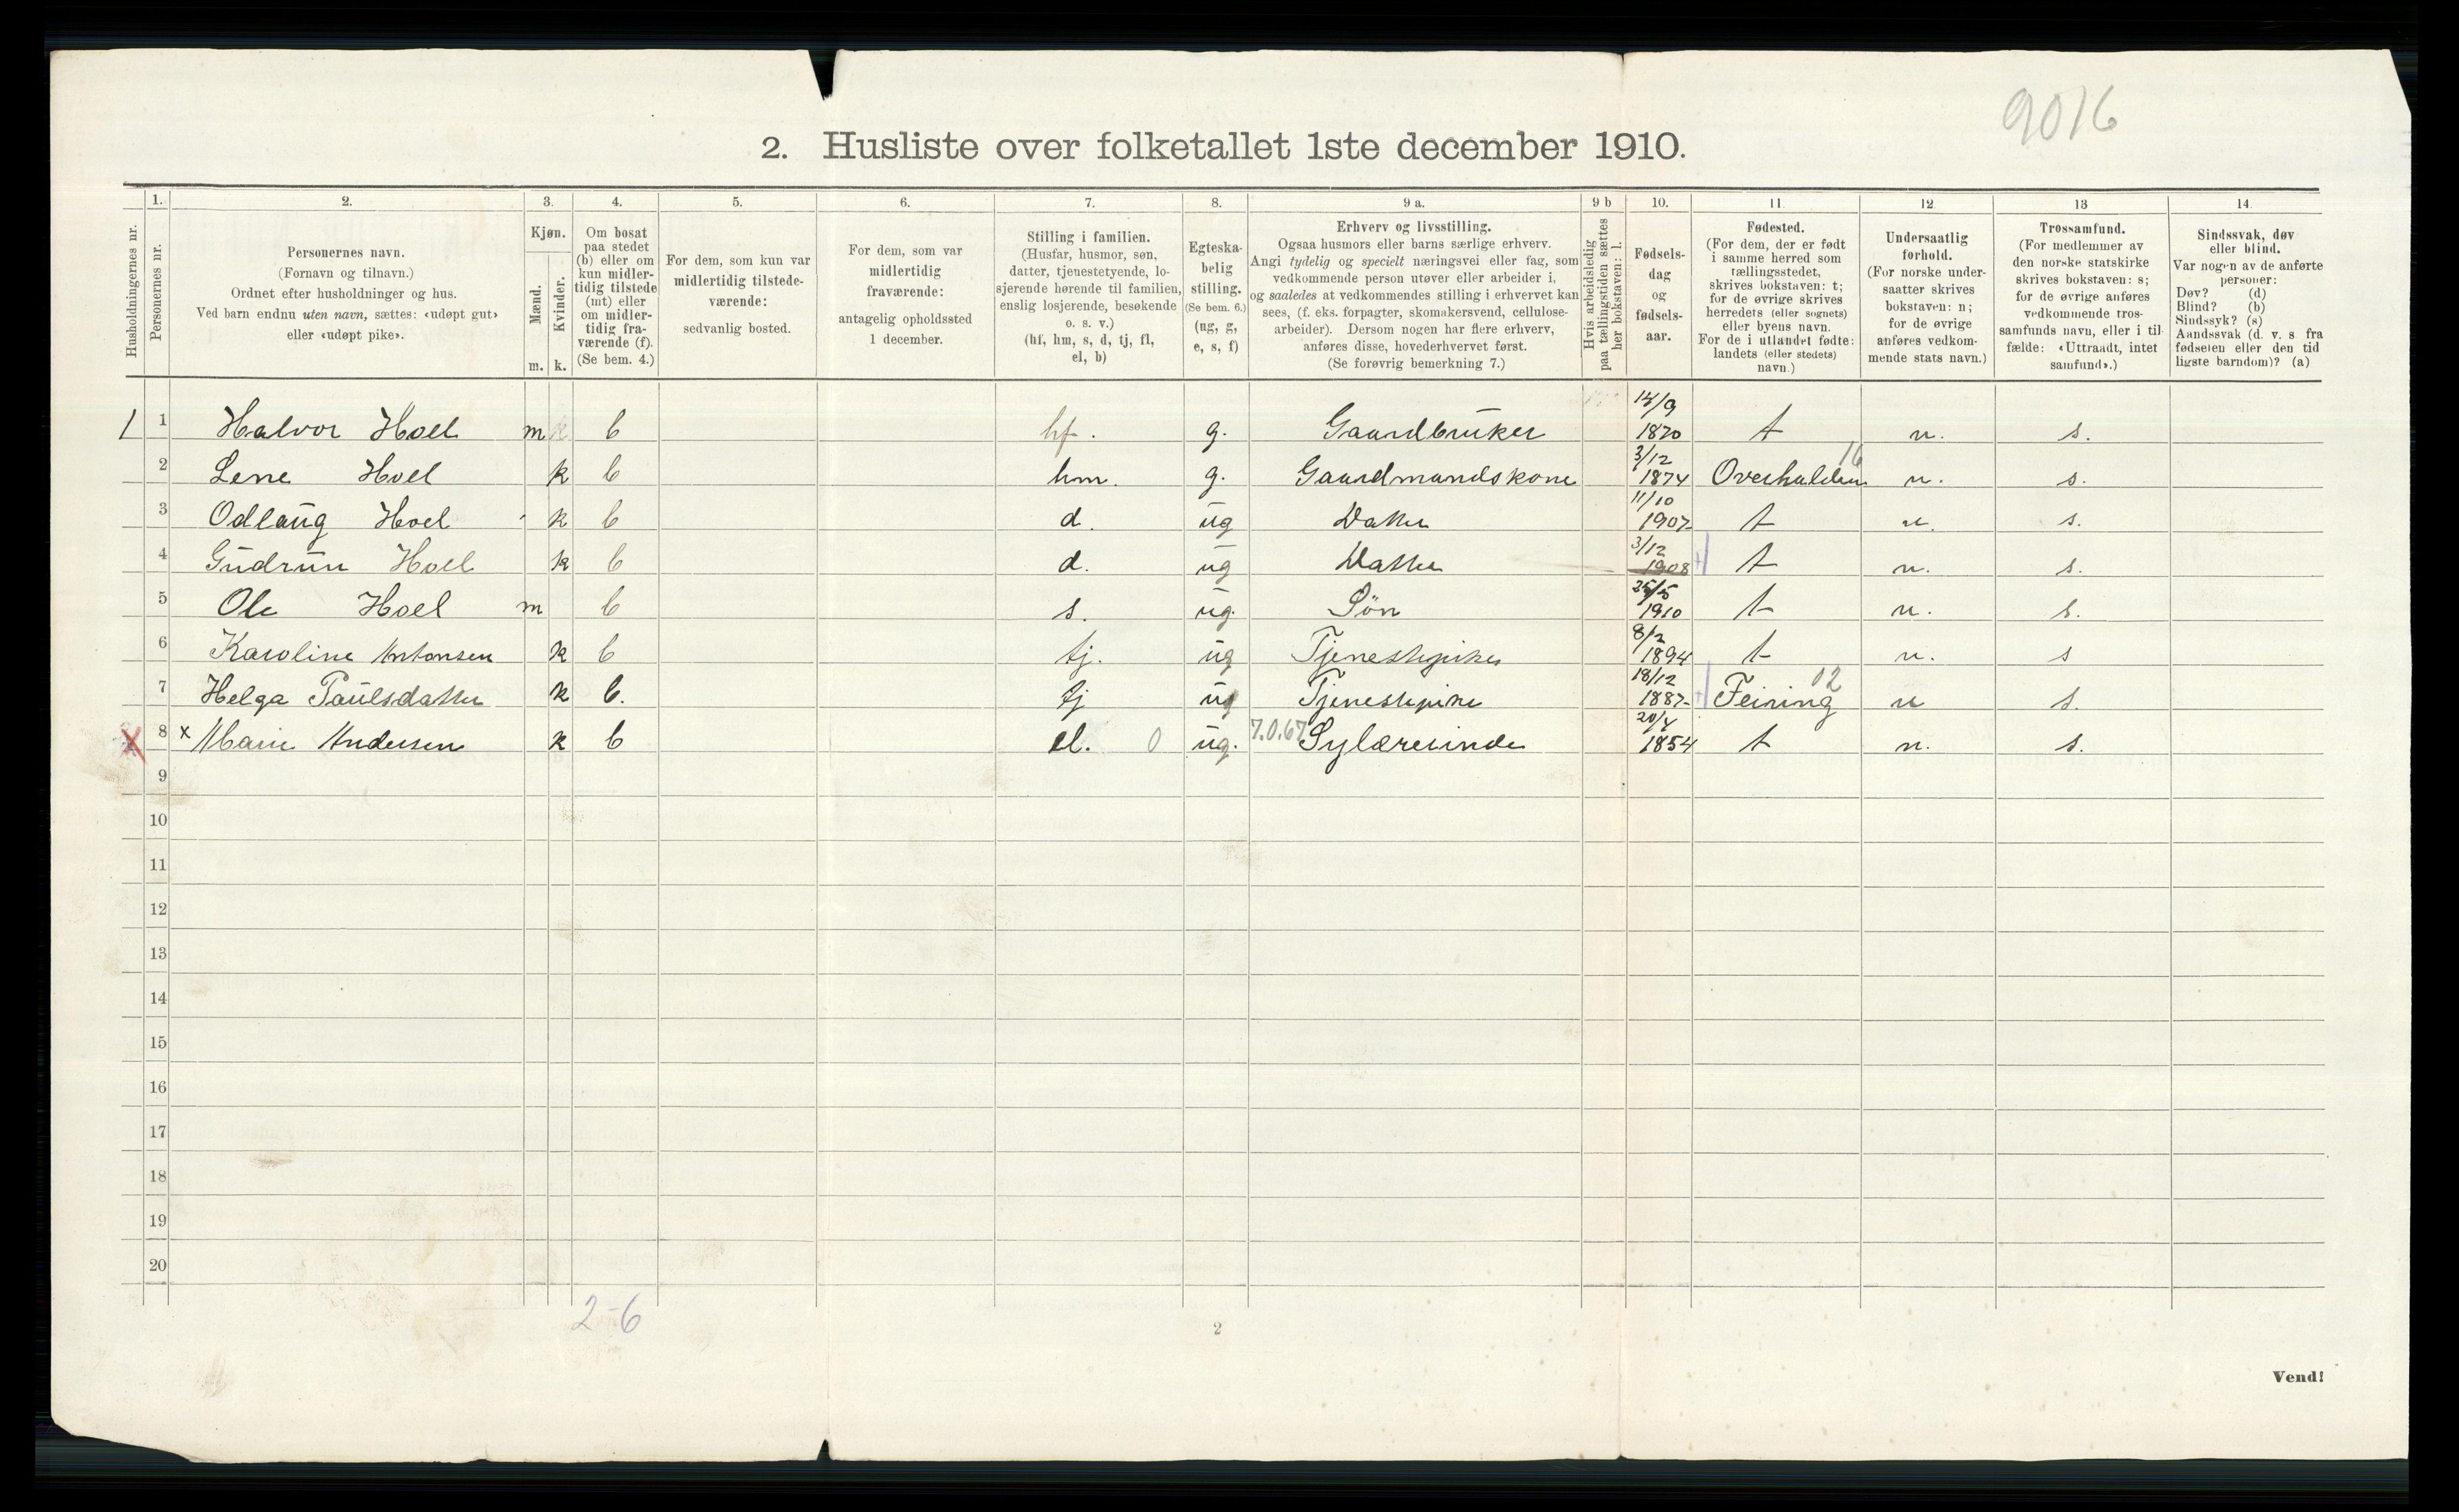 9016
2. Husliste over folketallet 1ste december 1910.
Husholdningernes nr.
1.
Personernes nr.
2.
Personernes navn.
(Fornavn og tilnavn.)
Ordnet efter husholdninger og hus.
Ved barn endnu uten navn, sættes: «udøpt gut»
eller «udøpt pike».
3.
Kjøn.
Mænd.
Kvinder.
m. k.
4.
Om bosat
paa stedet
(b) eller om
kun midler-
tidig tilstede
(mt) eller
om midler-
tidig fra-
værende (f).
(Se bem. 4.)
5.
For dem, som kun var
midlertidig tilstede-
værende:
sedvanlig bosted.
6.
For dem, som var
midlertidig
fraværende:
antagelig opholdssted
1 december.
7.
Stilling i familien.
(Husfar, husmor, søn,
datter, tjenestetyende, lo-
sjerende hørende til familien,
enslig losjerende, besøkende
o. s. v.)
(hf, hm, s, d, tj, fl,
el, b)
8.
Egteska-
belig
stilling.
(Se bem. 6.)
(ug, g,
e, s, f)
9 a.
Erhverv og livsstilling.
Ogsaa husmors eller barns særlige erhverv.
Angi tydelig og specielt næringsvei eller fag, som
vedkommende person utøver eller arbeider i,
og saaledes at vedkommendes stilling i erhvervet kan
sees, (f. eks. forpagter, skomakersvend, cellulose-
arbeider). Dersom nogen har flere erhverv,
anføres disse, hovederhvervet først.
(Se forøvrig bemerkning 7.)
9 b
Hvis arbeidsledig
paa tællingstiden sættes
her bokstaven: l.
10.
Fødsels-
dag
og
fødsels-
aar.
11.
Fødested.
(For dem, der er født
i samme herred som
tællingsstedet,
skrives bokstaven: t;
for de øvrige skrives
herredets (eller sognets)
eller byens navn.
For de i utlandet fødte:
landets (eller stedets)
navn.)
12.
Undersaatlig
forhold.
(For norske under-
saatter skrives
bokstaven: n;
for de øvrige
anføres vedkom-
mende stats navn.)
13
Trossamfund.
(For medlemmer av
den norske statskirke
skrives bokstaven: s;
for de øvrige anføres
vedkommende tros-
samfunds navn, eller i til
fælde: «Uttraadt, intet
samfund».)
14.
Sindssvak, døv
eller blind.
Var nogen av de anførte
personer:
Døv? (d)
Blind? (b)
Sindssyk? (s)
Aandssvak (d. v. s fra
fødselen eller den tid
ligste barndom)? (a)
1 1 Halvor Hoel m b hf. g. Gaardbruker 14/9 1870 t n. s.
2 Lene Hoel k b hm. g. Gaardmandskone 3/12 1874 Overhalden 16 n. s.
3 Odlaug Hoel k b d. ug Datter 11/10 1907 t n. s.
4 Gudrun Hoel k b d. ug Datter 3/12 1908 t n. s.
5 Ole Hoel m b s. ug. Søn 25/5 1910 t n. s.
6 Karoline Antonsen k b tj. ug Tjenestepike 8/2 1894 t n. s
7 Helga Paulsdatter k b. tj ug Tjenestepike 18/12 1887 Feiring 02 n s.
8 x Marie Andersen k b el. 0 ug. 7.0.67 Sylærerinde 20/4 1854 t n. s.
9
10
11
12
13
14
15
16
17
18
19
20
2-6
2
Vend!